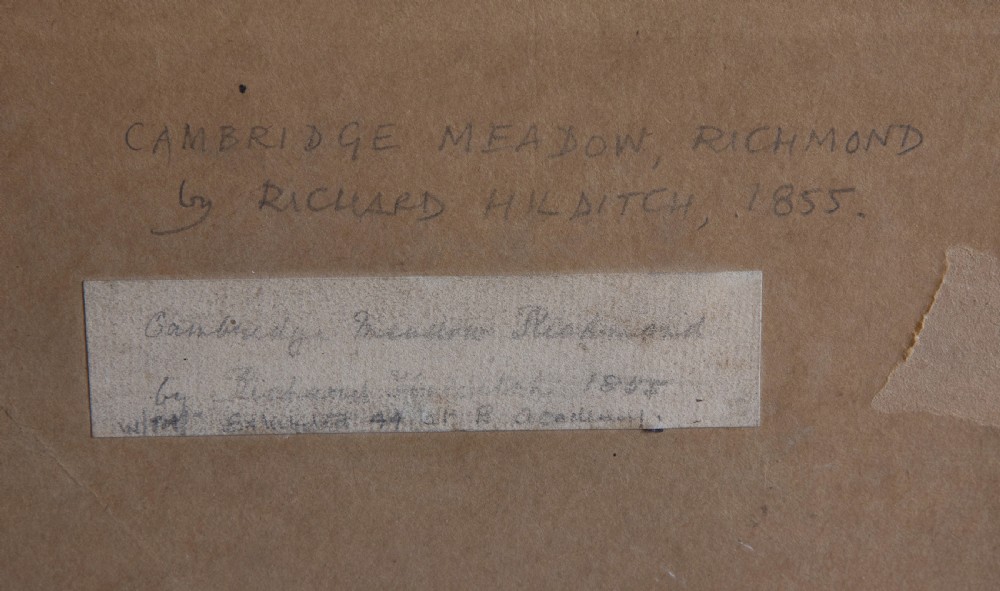 CAMBRIDGE MEADOW, RICHMOND
by RICHARD HILDITCH, 1855.
Cambridge Meadow Richmond
by Richard 1855
Exhibited 44 at R. Academy.